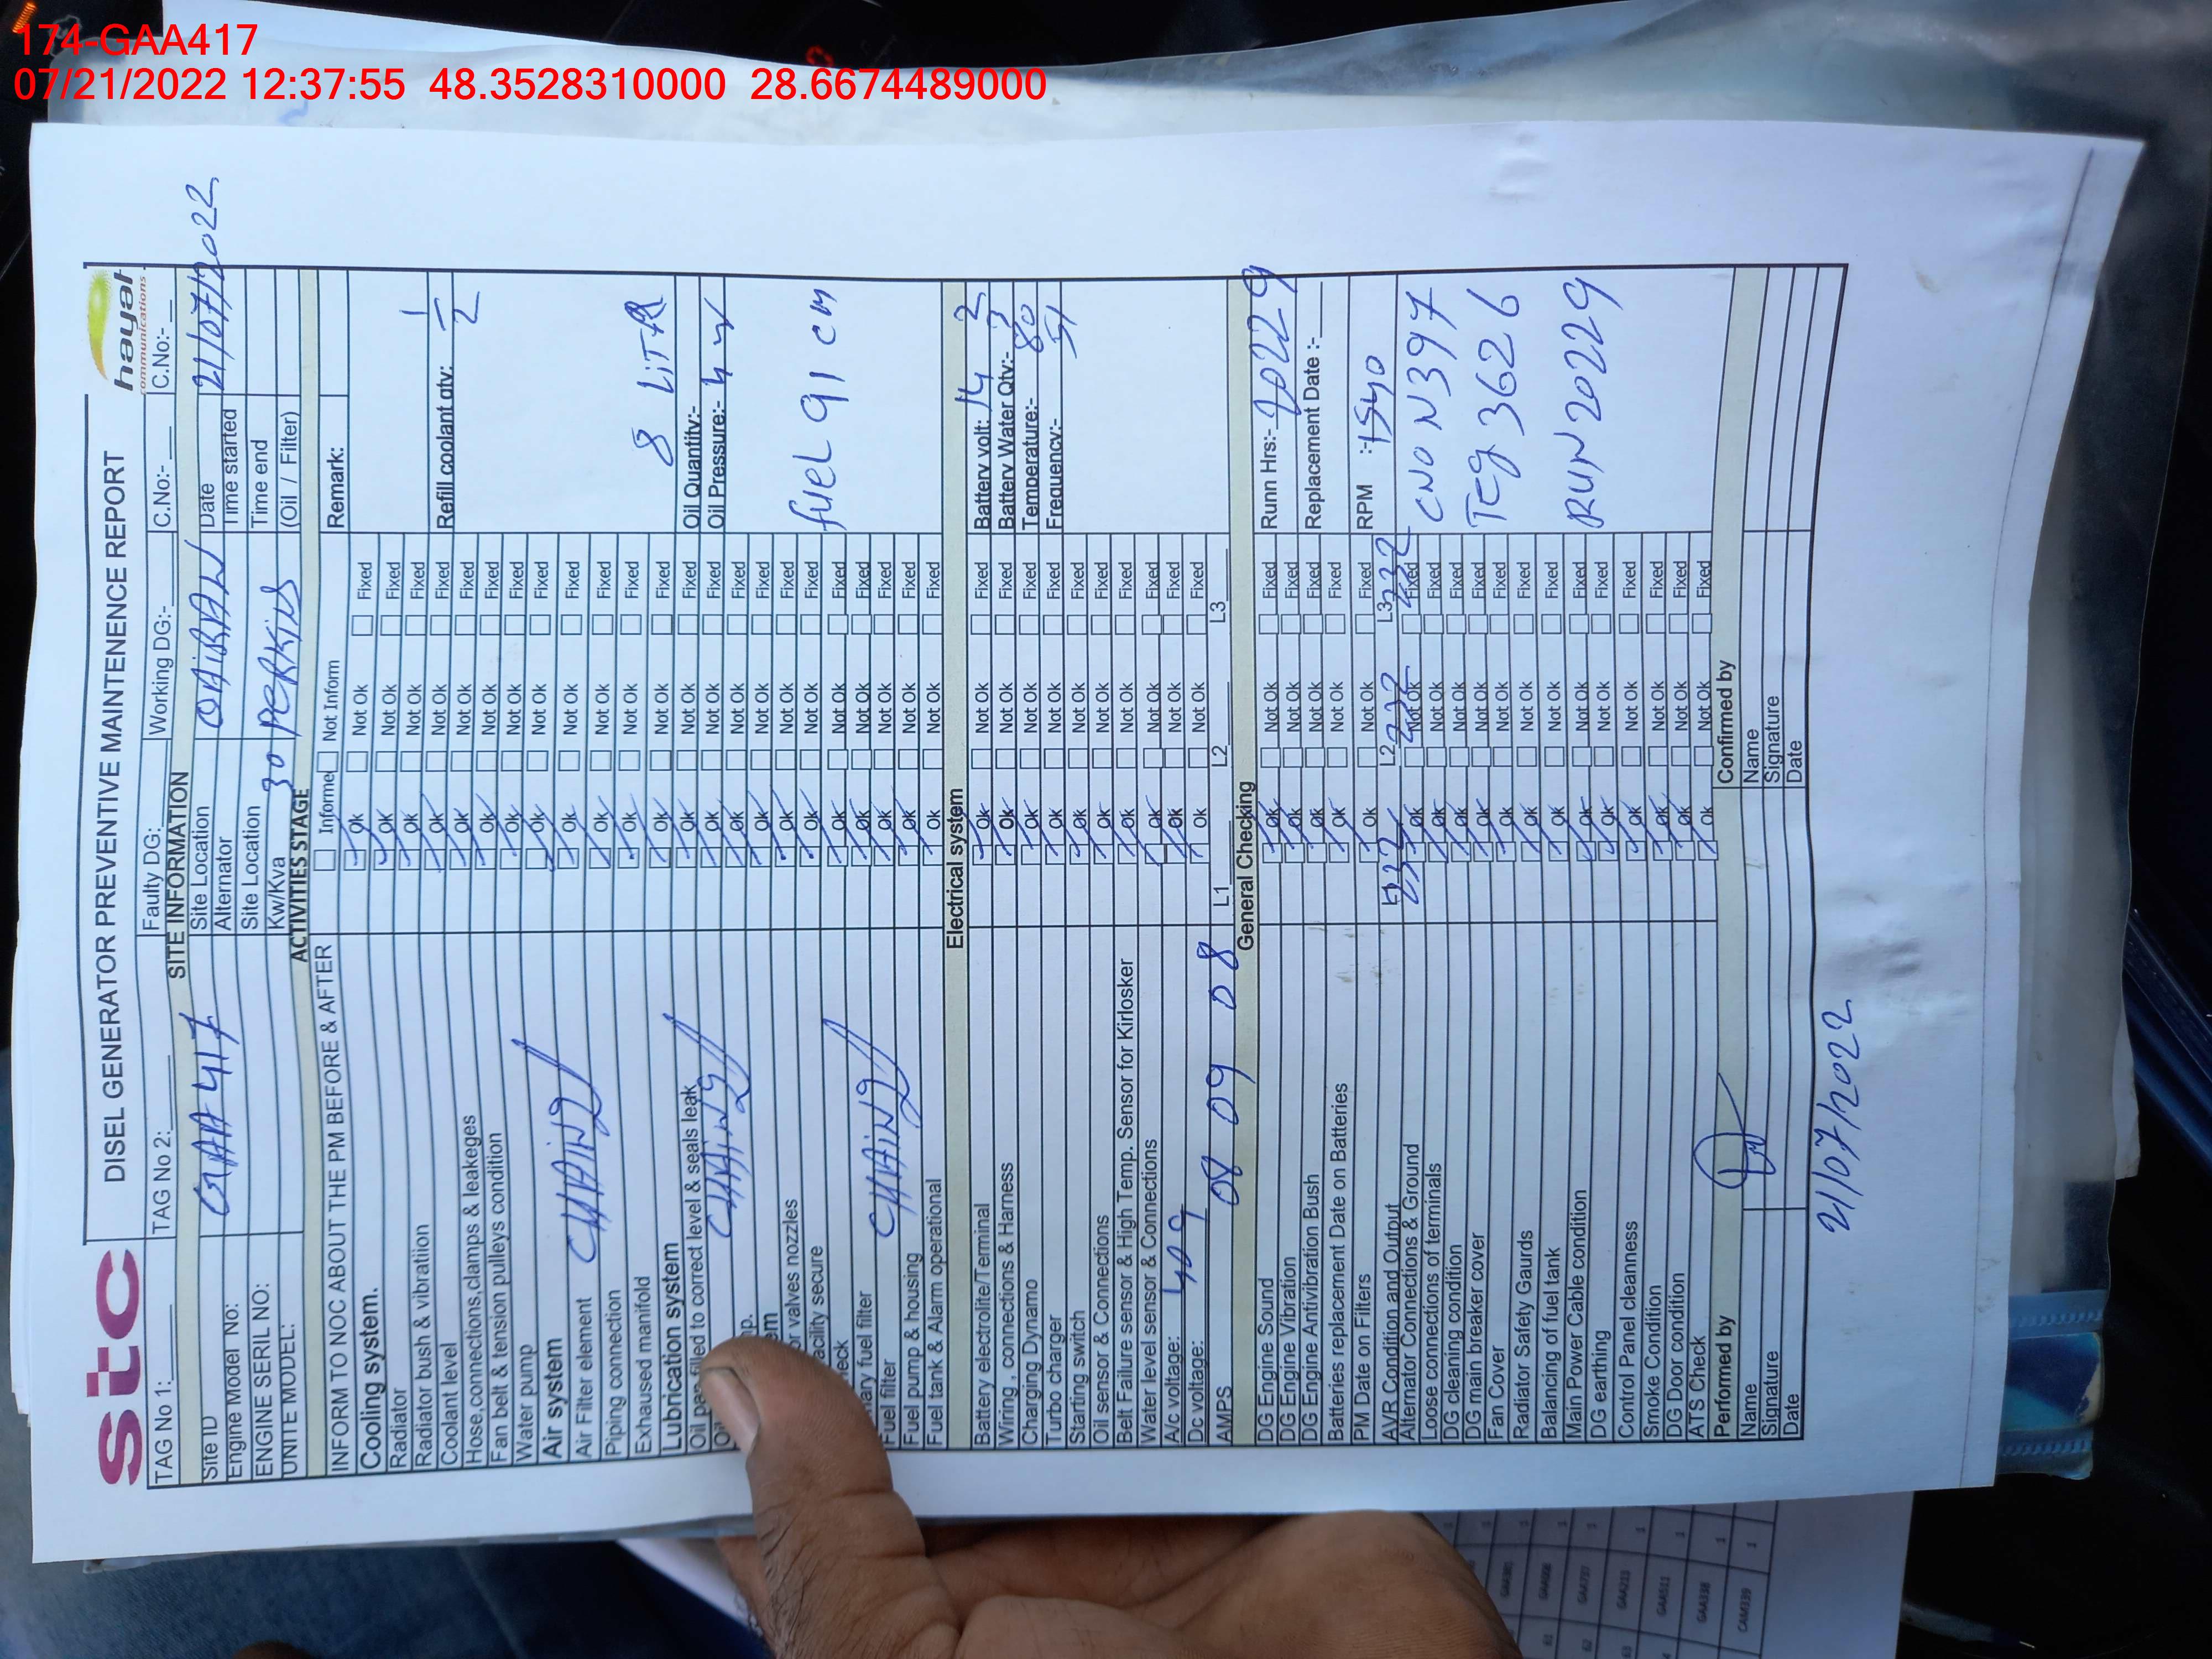 174-GAA417
07/21/2022 12:37:55 48.3528310000 28.6674489000
stc
DISEL GENERATOR PREVENTIVE MAINTENENCE REPORT
hayat
communications
TAG No 1:
TAG No 2:
Faulty DG:
Working DG:-
C.No:-
C.No:-
SITE INFORMATION
Site ID GAA417 Site Location Date 21/07/2022
Engine Model No: Alternator Time started
ENGINE SERIL NO: Site Location Time end
UNITE MODEL: Kw/Kva 30 PERKINS (Oil / Filter)
ACTIVITIES STAGE
INFORM TO NOC ABOUT THE PM BEFORE & AFTER Informe Not Inform Remark:
Cooling system. Ok Not Ok Fixed
Radiator Ok Not Ok Fixed
Radiator bush & vibratiion Ok Not Ok Fixed
Coolant level Ok Not Ok Fixed Refill coolant qty: 1/2
Hose,connections,clamps & leakeges Ok Not Ok Fixed
Fan belt & tension pulleys condition Ok Not Ok Fixed
Water pump Ok Not Ok Fixed
Air system Ok Not Ok Fixed
Air Filter element CHAING Ok Not Ok Fixed
Piping connection Ok Not Ok Fixed
Exhaused manifold Ok Not Ok Fixed
Lubrication system Ok Not Ok Fixed 8 LiTR
Oil pan filled to correct level & seals leak Ok Not Ok Fixed Oil Quantity:-
CHAING Ok Not Ok Fixed Oil Pressure:- 4
Ok Not Ok Fixed
Ok Not Ok Fixed
or valves nozzles Ok Not Ok Fixed
secure Ok Not Ok Fixed fuel 91 cm
Ok Not Ok Fixed
fuel filter CHAING Ok Not Ok Fixed
Fuel filter Ok Not Ok Fixed
Fuel pump & housing Ok Not Ok Fixed
Fuel tank & Alarm operational Ok Not Ok Fixed
Electrical system
Battery electrolite/Terminal Ok Not Ok Fixed Battery volt: 14 2
Wiring , connections & Harness Ok Not Ok Fixed Battery Water Qty:- 3
Charging Dynamo Ok Not Ok Fixed Temperature:- 80
Turbo charger Ok Not Ok Fixed Frequency:- 51
Starting switch Ok Not Ok Fixed
Oil sensor & Connections Ok Not Ok Fixed
Belt Failure sensor & High Temp. Sensor for Kirlosker Ok Not Ok Fixed
Water level sensor & Connections Ok Not Ok Fixed
A/c voltage: 409 Ok Not Ok Fixed
Dc voltage: Ok Not Ok Fixed
AMPS 08 09 08 L1 L2 L3
General Checking
DG Engine Sound Ok Not Ok Fixed Runn Hrs:- 20229
DG Engine Vibration Ok Not Ok Fixed
DG Engine Antivibration Bush Ok Not Ok Fixed Replacement Date :-
Batteries replacement Date on Batteries Ok Not Ok Fixed
PM Date on Filters Ok Not Ok Fixed RPM :- 1540
AVR Condition and Output 232 L2 232 L3 232
Alternator Connections & Ground Ok Not Ok Fixed
Loose connections of terminals Ok Not Ok Fixed CNO N397
DG cleaning condition Ok Not Ok Fixed
DG main breaker cover Ok Not Ok Fixed Teg 3626
Fan Cover Ok Not Ok Fixed
Radiator Safety Gaurds Ok Not Ok Fixed
Balancing of fuel tank Ok Not Ok Fixed
Main Power Cable condition Ok Not Ok Fixed RUN 20229
DG earthing Ok Not Ok Fixed
Control Panel cleanness Ok Not Ok Fixed
Smoke Condition Ok Not Ok Fixed
DG Door condition Ok Not Ok Fixed
ATS Check Ok Not Ok Fixed
Performed by Confirmed by
Name Name
Signature Signature
Date Date
21/07/2022